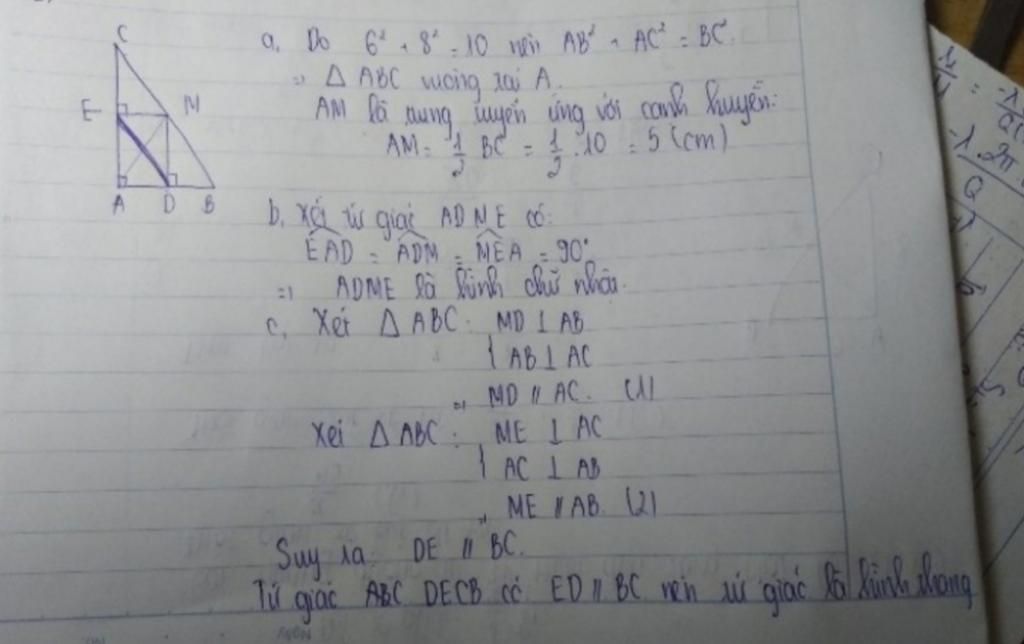 C
E
M
A D B
a, Do 6² + 8² = 10 nên AB² + AC² = BC².
=> Δ ABC vuông tại A.
AM là trung tuyến ứng với cạnh huyền:
AM = 1/2 BC = 1/2 . 10 = 5 (cm)
b, Xét tứ giác ADME có:
EAD = ADM = MEA = 90°
=> ADME là hình chữ nhật.
c, Xét Δ ABC: MD ⊥ AB
{ AB ⊥ AC
=> MD // AC. (1)
Xét Δ ABC: ME ⊥ AC
{ AC ⊥ AB
=> ME // AB. (2)
Suy ra: DE // BC.
Tứ giác ABC DECB có ED // BC nên tứ giác là hình thang